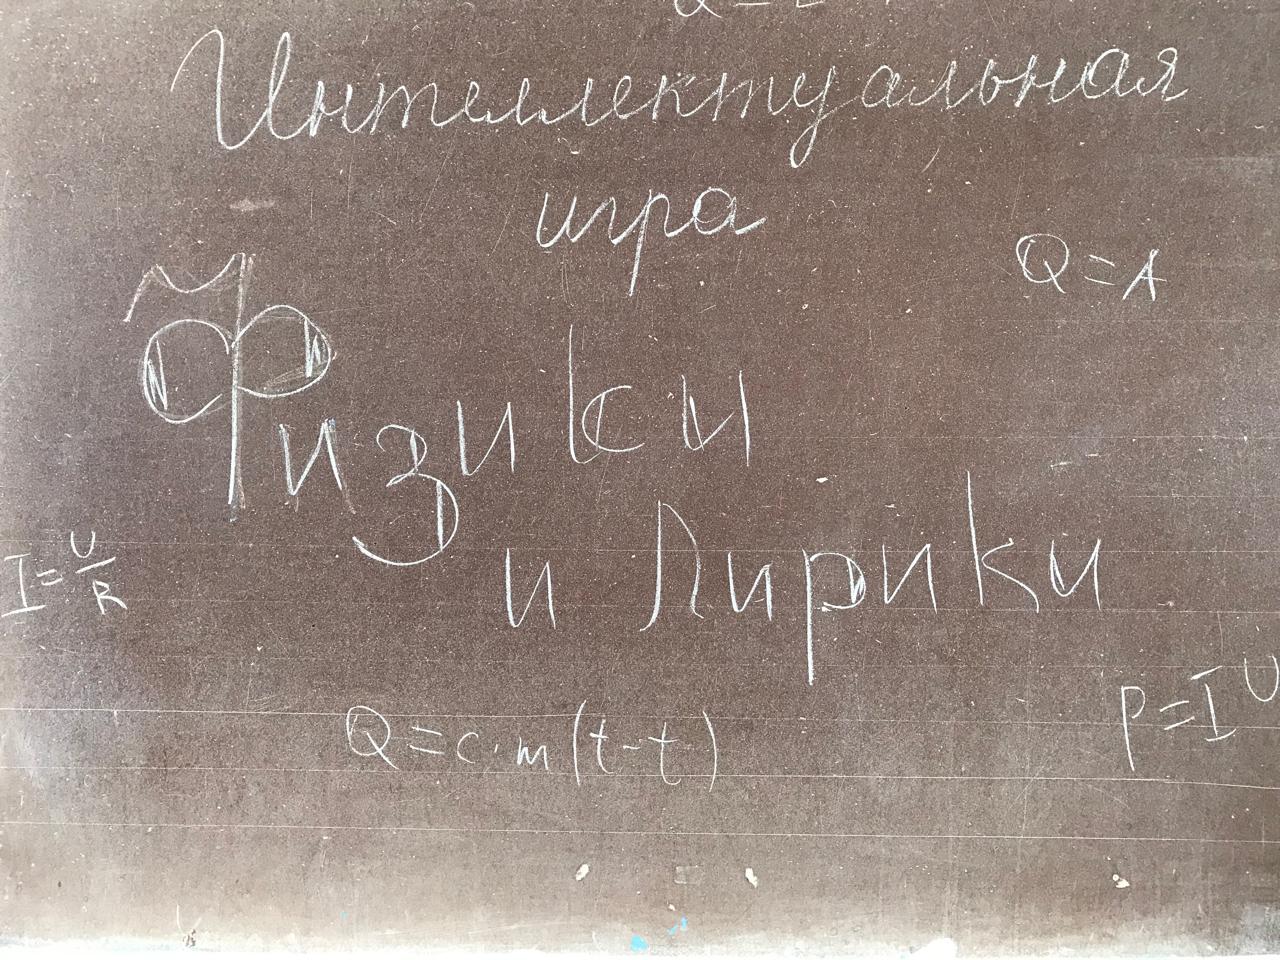 Интеллектуальная
игра
Q = A
Физики
и Лирики
I = U/R
P = I U
Q = c · m (t - t)